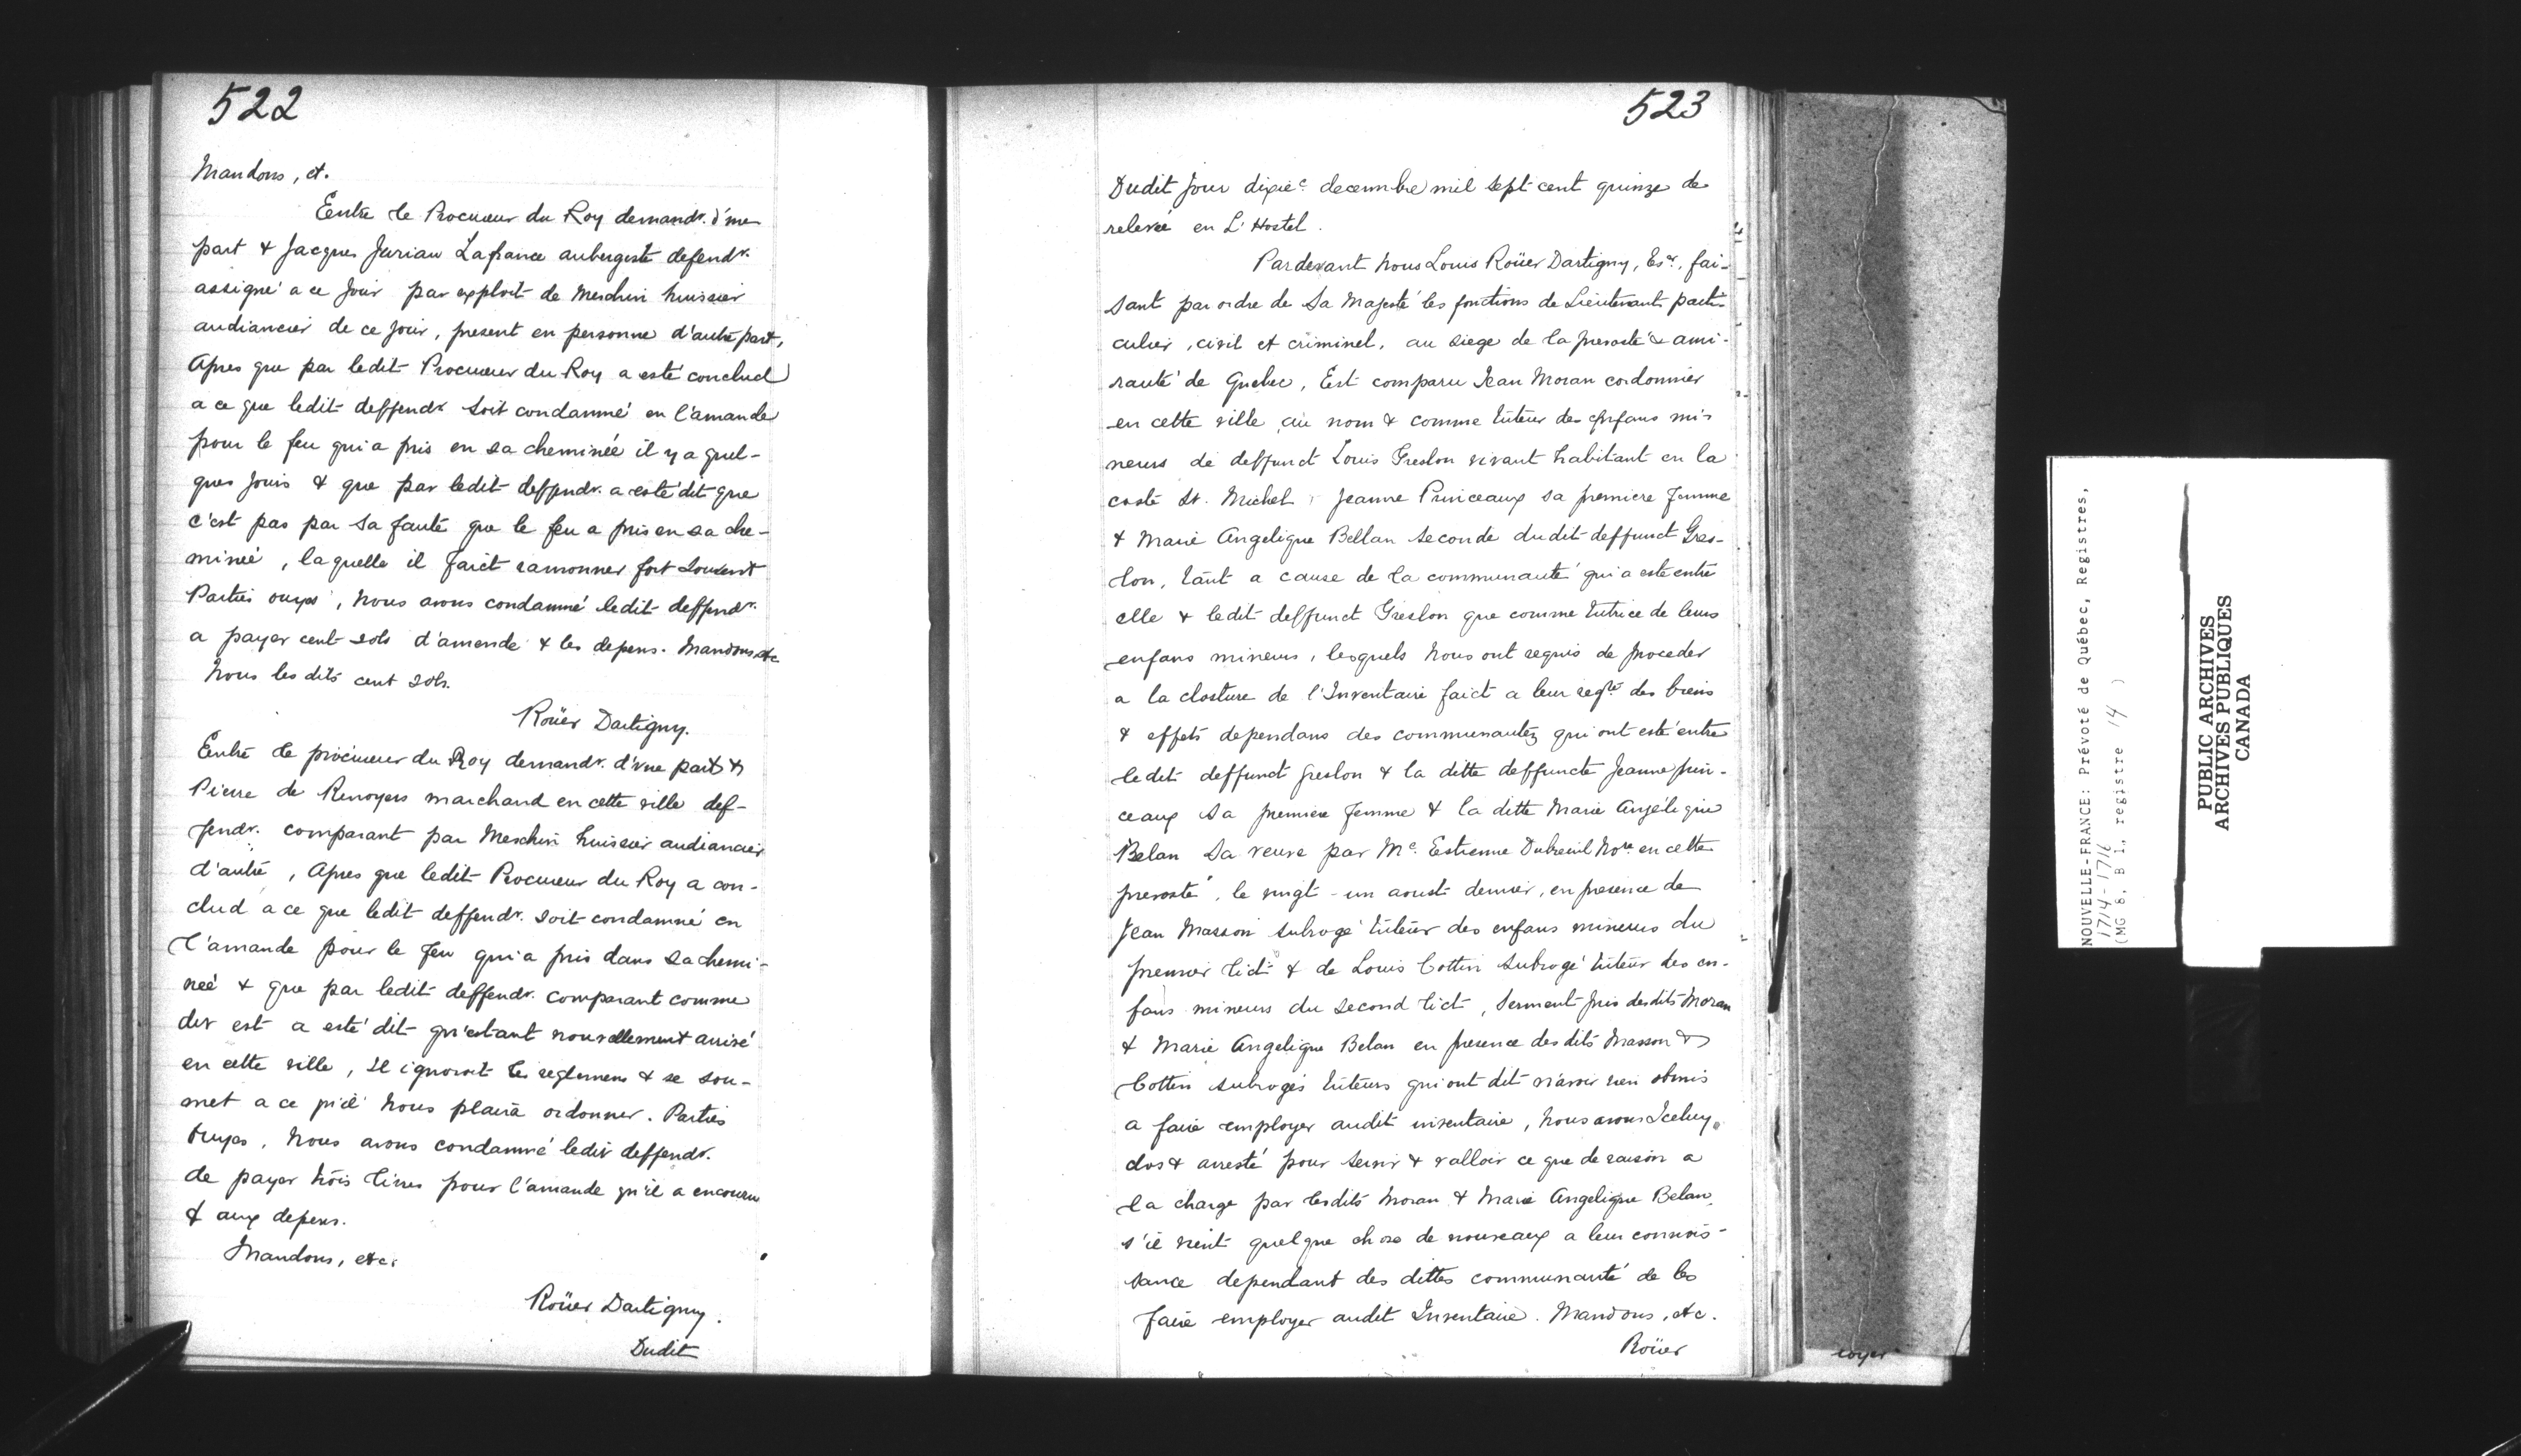 522
Mandons, et.
Entre le Procureur du Roy demandr. d'une
part & Jacques Jurian Lafrance aubergiste defendr.
assigné a ce jour par exploit de Meschin huissier
audiancier de ce jour, present en personne d'autre part,
Apres que par ledit Procureur du Roy a esté conclud
a ce que ledit deffendr soit condamné en l'amande
pour le feu qui a pris en sa cheminée il y a quel-
ques jours & que par ledit deffendr. a esté dit que
c'est pas par sa faute que le feu a pris en sa che-
minée, laquelle il faict ramonner fort souvent
Parties ouyes, nous avons condamné ledit deffendr.
a payer cent sols d'amende & les depens. Mandons etc
Nous les dits cent sols.
Roüer Dartigny.
Entre le procureur du Roy demandr. d'une part &
Pierre de Renoyers marchand en cette ville def-
fendr. comparant par Meschin huissier audiancier
d'autre, Apres que ledit Procureur du Roy a con-
clud a ce que ledit deffendr. soit condamné en
l'amande pour le feu qui a pris dans sa chemi-
née & que par ledit deffendr. comparant comme
dit est a esté dit qu'estant nouvellement arrivé
en cette ville, Il ignoroit les reglemens & se sou-
met a ce qu'il nous plaira ordonner. Parties
Ouyes, Nous avons condamné ledit deffendr.
de payer trois livres pour l'amande qu'il a encouru
& aux depens.
Mandons, etc.
Roüer Dartigny.
Dudit
523
Dudit jour dixie decembre mil sept cent quinze de
relevée en L'Hostel.
Pardevant nous Louis Roüer Dartigny, Esr., fai-
sant par ordre de Sa Majesté les fonctions de Lieutenant parti-
culier, civil et criminel, au siege de la prevosté & ami-
rauté de Quebec, Est comparu Jean Moran cordonnier
en cette ville au nom & comme tuteur des Enfans mi-
neurs de deffunct Louis Greslon vivant habitant en la
coste St. Michel, Jeanne Princeaux sa premiere femme
& Marie Angelique Bellan seconde dudit deffunct Gres-
lon, tant a cause de la communauté qui a esté entre
elle & ledit deffunct Greslon que comme tutrice de leurs
enfans mineurs, lesquels nous ont requis de proceder
a la closture de l'Inventaire faict a leur reqte des biens
& effets dependans des communautez qui ont esté entre
ledit deffunct greslon & la ditte deffuncte Jeanne prin-
ceaux sa premiere femme & la ditte Marie Angélique
Belan sa veuve par Me. Estienne Dubreuil Nore en cette
prevosté, le vingt-un aoust dernier, en presence de
Jean Masson subrogé tuteur des enfans mineurs du
premier lict & de Louis Cottin subrogé tuteur des en-
fans mineurs du second lict, serment pris desdits Moran
& Marie Angelique Belan en presence desdits Masson &
Cottin subrogés tuteurs qui ont dit n'avoir rien obmis
a faire employer audit inventaire, Nous avons Iceluy
clos & arresté pour servir & valloir ce que de raison a
la charge par lesdits Moran & Marie Angelique Belan,
s'il vient quelque chose de nouveaux a leur connois-
sance dependant des dittes communauté de les
faire employer audit Inventaire. Mandons, etc.
Roüer
NOUVELLE-FRANCE: Prévoté de Québec, Registres,
1714-1716
(MG 8, B 1, registre 14 )
PUBLIC ARCHIVES
ARCHIVES PUBLIQUES
CANADA